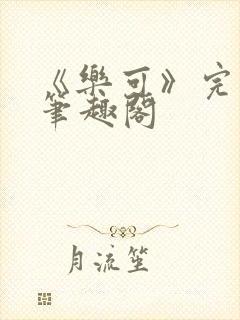 《樂可》完
筆趣閣
月流笙